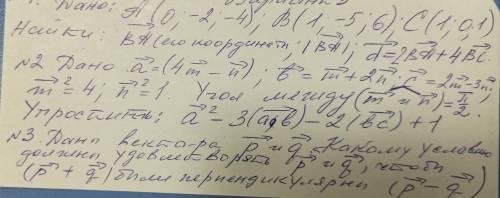 Дано: A(0, -2, -4); B(1; -5; 6); C(1; 0; 1)
Найти: BA⃗ (его координаты, |BA⃗|; d⃗=2BA⃗+4BC⃗.
№2 Дано a⃗=(4m⃗-n⃗); b⃗=m⃗+2n⃗; c⃗=2m⃗-3n⃗;
m⃗²=4; n⃗²=1. Угол между (m⃗ и n⃗)=π/2.
Упростить: a⃗²-3(a⃗b⃗)-2(b⃗c⃗)+1
№3. Даны вектора p⃗ и q⃗. Какому условию
должны удовлетворять p⃗ и q⃗, чтобы
(p⃗+q⃗) были перпендикулярны (p⃗-q⃗)